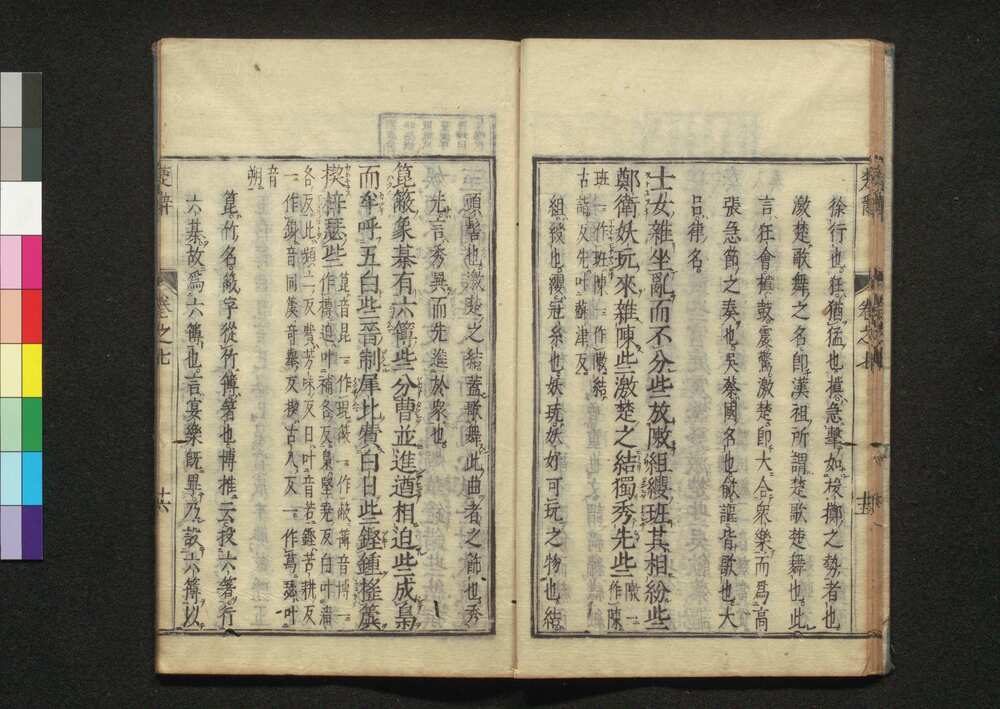 徐行也狂猶猛也搷急擊如投擲之勢者也
激楚歌舞之名即漢祖所謂楚歌楚舞也此
言狂會搷鼓震驚激楚即大合衆樂而爲高
張急節之奏也吳蔡國名也歈謳皆歌也大
呂律名
士女雜坐亂而不分些放敶組纓班其相紛些
鄭衛妖玩來雜陳些激楚之結獨秀先些敶一作陳
班一作班陳一作敶結
古詣反先叶蘇津反
組綬也纓冠系也妖玩妖好可玩之物也結
頭髻也激楚之結蓋歌舞此曲者之飾也秀
先言秀異而先進於衆也
箟蔽象棊有六簙些分曹並進遒相迫些成梟
而牟呼五白些晉制犀比費白日些鏗鍾搖簴
揳梓瑟些箟音昆一作琨蔽一作蔽簙音博一
作博迫叶補各反梟堅堯反白叶蒲
各反比頻二反費芳味反日叶音若鏗苦耕反
一作鏗音同簴音舉反揳古八反一作戞瑟叶
音
朔
箟竹名蔽字從竹簙箸也博推云投六箸行
六棊故爲六簙也言宴樂既畢乃設六簙以
楚辭
卷之七
十六